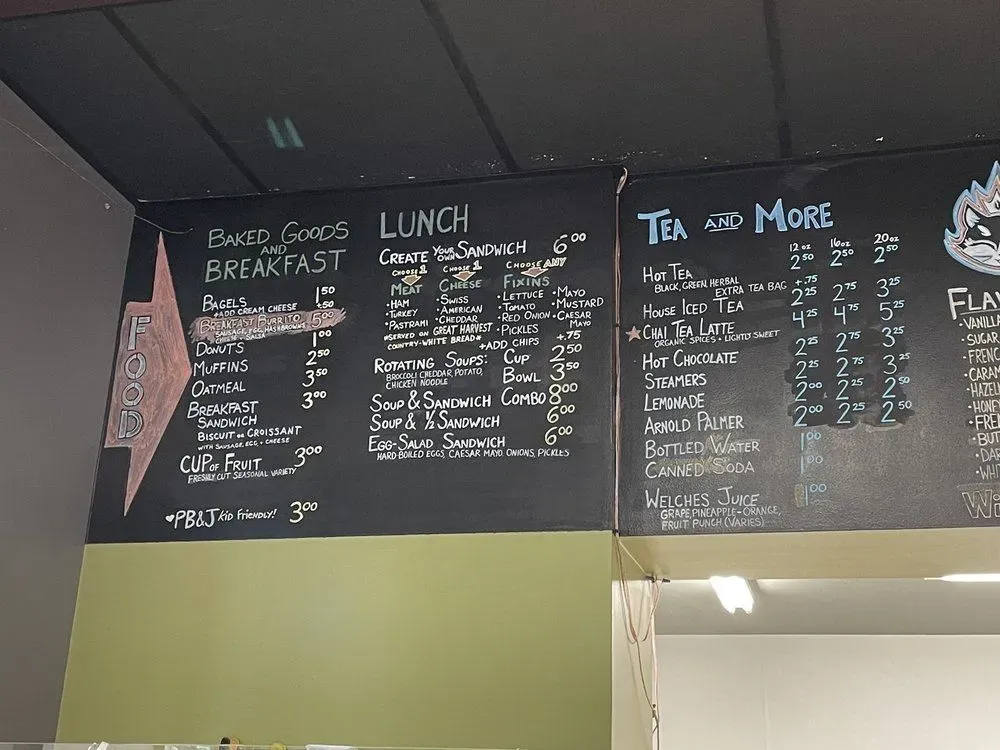 FOOD
BAKED GOODS
AND
BREAKFAST
BAGELS 1.50
+ADD CREAM CHEESE +.50
BREAKFAST BURRITO 5.00
SAUSAGE, EGG, HASHBROWNS
CHEESE + SALSA
DONUTS 1.00
MUFFINS 2.50
OATMEAL 3.50
BREAKFAST 3.00
SANDWICH
BISCUIT OR CROISSANT
WITH SAUSAGE, EGG, + CHEESE
CUP OF FRUIT 3.00
FRESHLY CUT SEASONAL VARIETY
♥PB&J KID FRIENDLY! 3.00
LUNCH
CREATE YOUR OWN SANDWICH 6.00
CHOOSE 1 CHOOSE 1 CHOOSE ANY
MEAT CHEESE FIXINS
•HAM •SWISS •LETTUCE •MAYO
•TURKEY •AMERICAN •TOMATO •MUSTARD
•PASTRAMI •CHEDDAR •RED ONION •CAESAR MAYO
*SERVED ON GREAT HARVEST •PICKLES
COUNTRY-WHITE BREAD* +ADD CHIPS +.75
ROTATING SOUPS: CUP 2.50
BROCCOLI CHEDDAR, POTATO, BOWL 3.50
CHICKEN NOODLE
SOUP & SANDWICH COMBO 8.00
SOUP & 1/2 SANDWICH 6.00
EGG-SALAD SANDWICH 6.00
HARD BOILED EGGS, CAESAR MAYO, ONIONS, PICKLES
TEA AND MORE
12 oz 16oz 20oz
HOT TEA 2.50 2.50 2.50
BLACK, GREEN, HERBAL EXTRA TEA BAG +.75
HOUSE ICED TEA 2.25 2.75 3.25
CHAI TEA LATTE 4.25 4.75 5.25
ORGANIC SPICES + LIGHTLY SWEET
HOT CHOCOLATE 2.25 2.75 3.25
STEAMERS 2.25 2.75 3.25
LEMONADE 2.00 2.25 2.50
ARNOLD PALMER 2.00 2.25 2.50
BOTTLED WATER 1.00
CANNED SODA 1.00
WELCHES JUICE 1.00
GRAPE, PINEAPPLE-ORANGE,
FRUIT PUNCH (VARIES)
FLAV
•VANILL
•SUGAR
•FRENC
•CARAM
•HAZEL
•HONEY
•FRE
•BUT
•DAR
•WHI